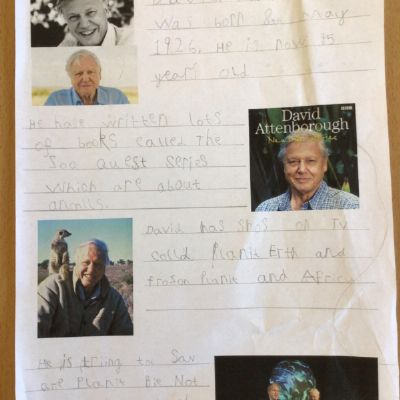 born 8th May
1926. He is now 95
years old
He have written lots
of books called The
Zoo quest series
Which are about
animils.
BBC
David
Attenborough
New Life Stories
David has shos on TV
colld Planit Erth and
frozon Planit and Africa
He is triing to Sav
are Planit Bie Not